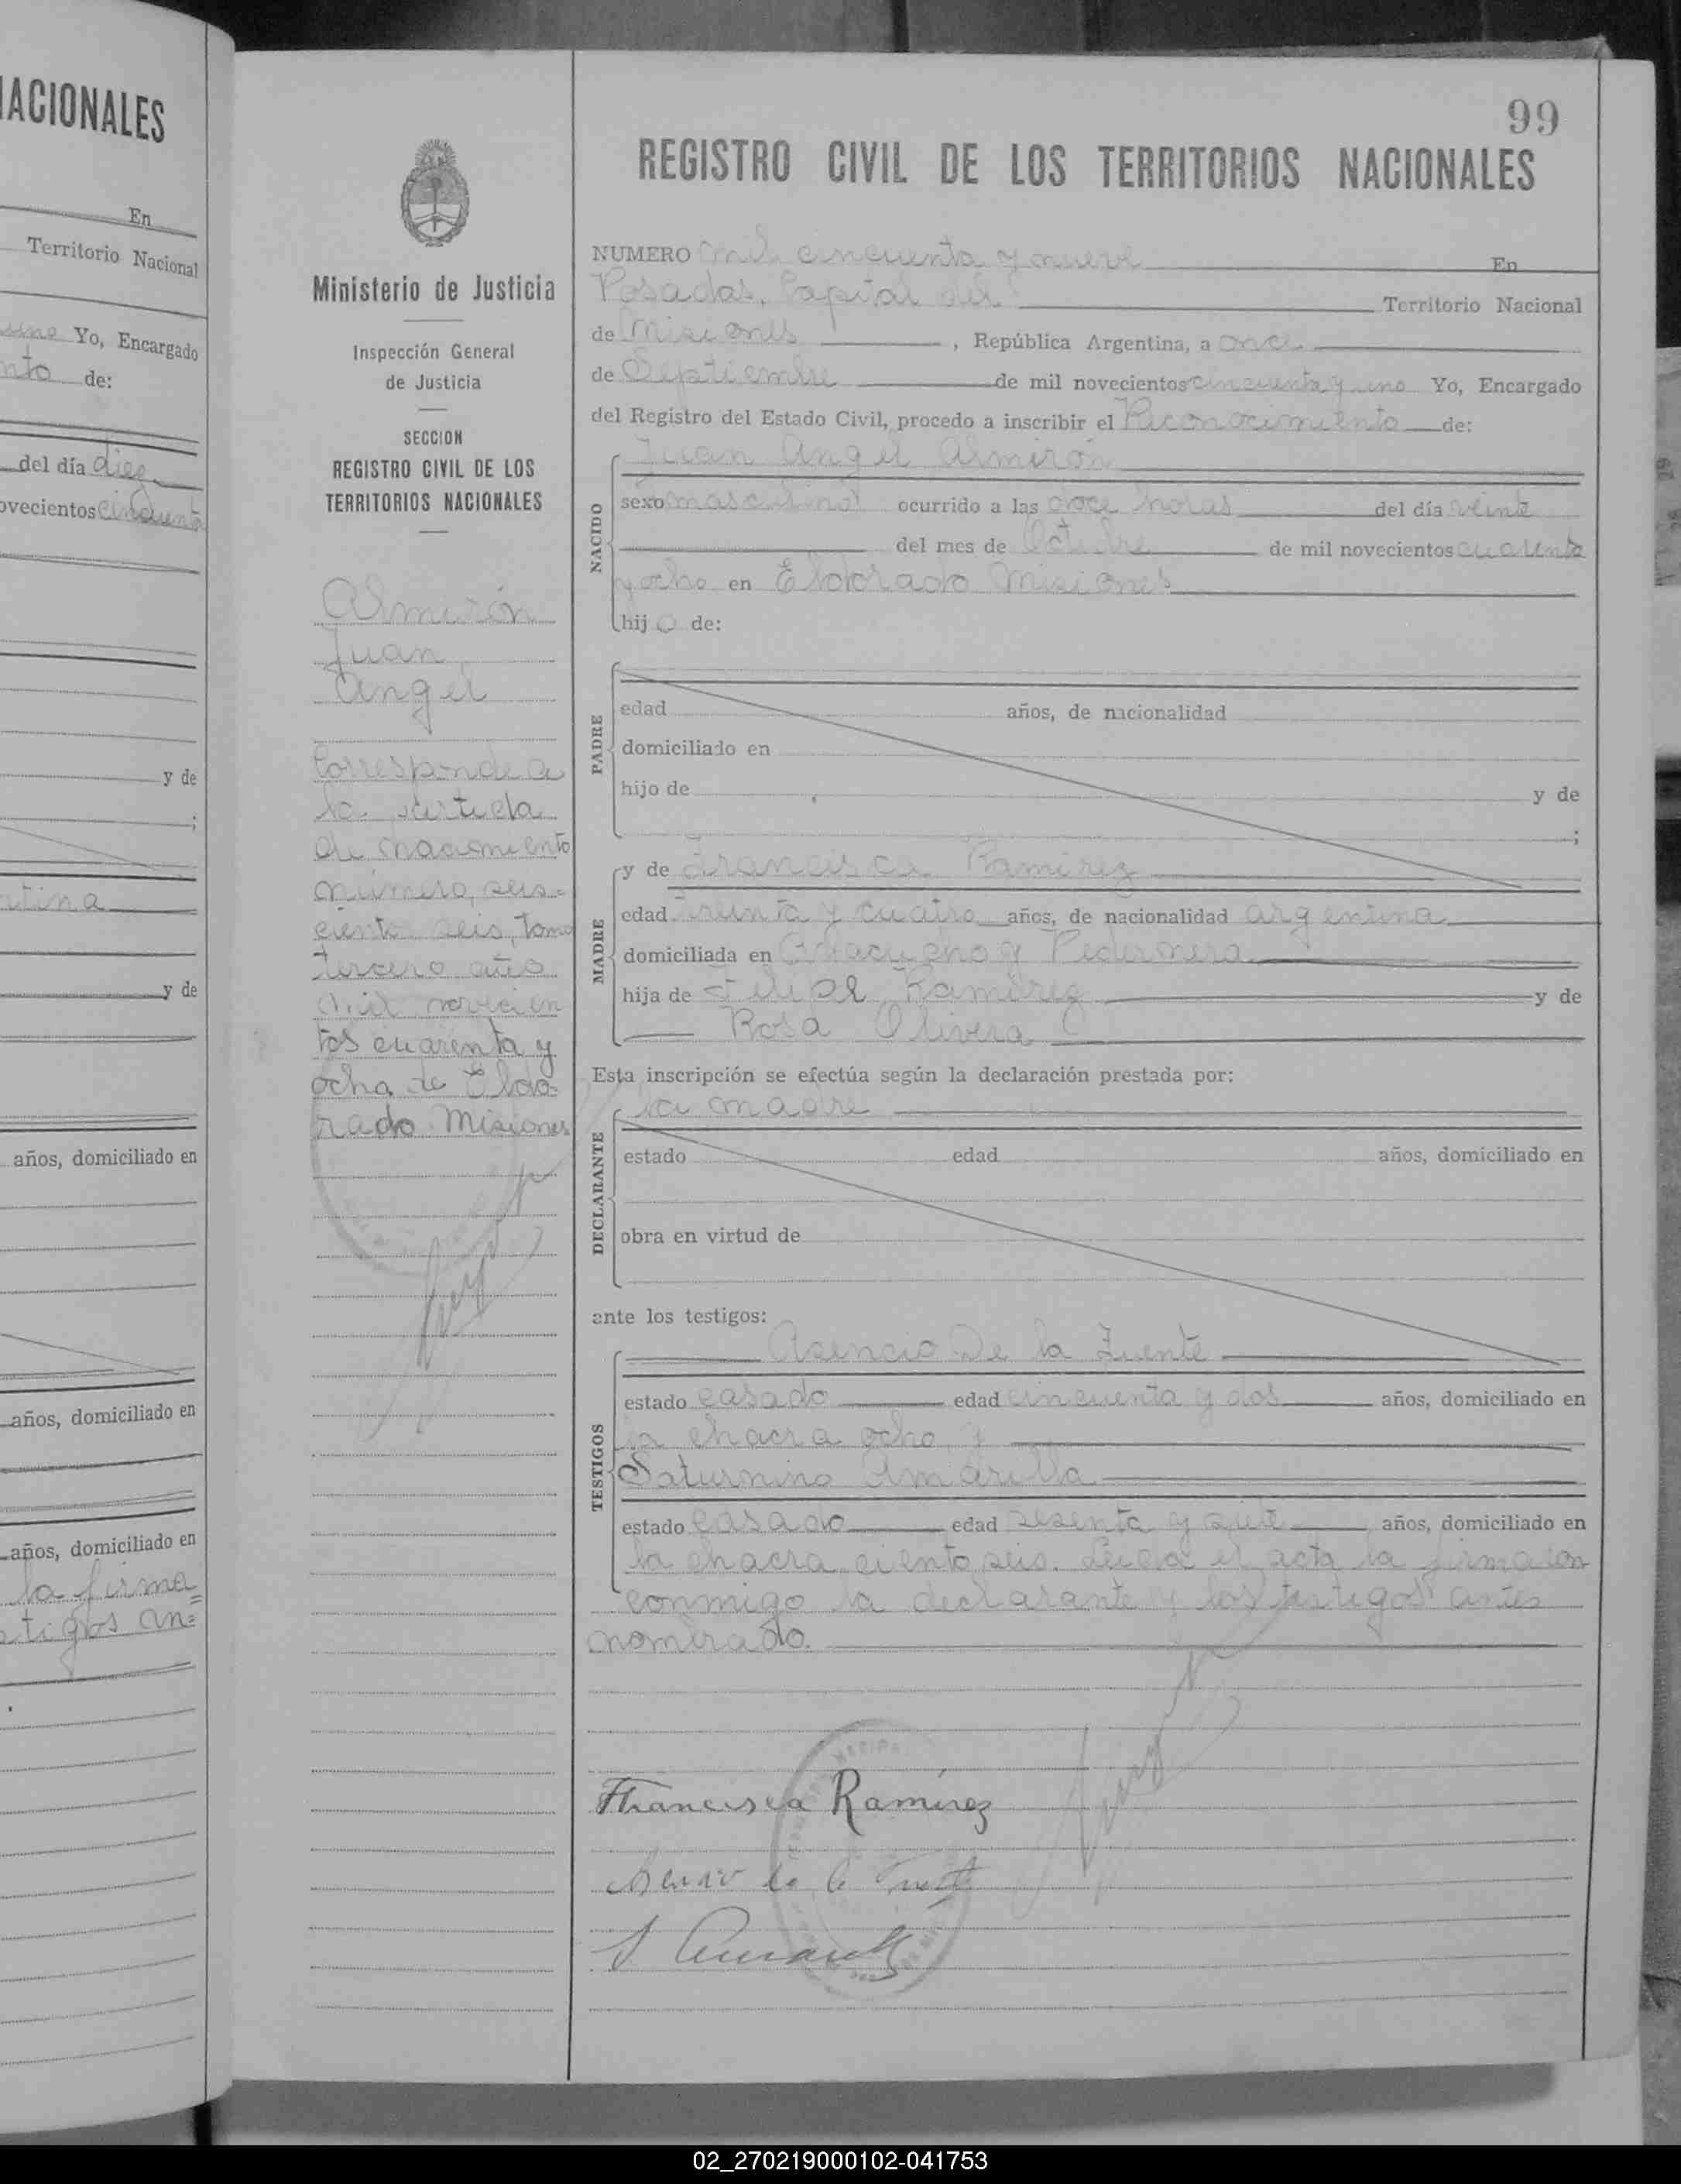 NACIONALES
En
Territorio Nacional
Yo, Encargado
nto de:
del día diez
novecientos cincuenta
y de
;
ntina
y de
años, domiciliado en
años, domiciliado en
años, domiciliado en
la firma
stigos an=
99
Ministerio de Justicia
Inspección General
de Justicia
SECCION
REGISTRO CIVIL DE LOS
TERRITORIOS NACIONALES
Almirón
Juan
Angel
Corresponde a
la partida
de nacimiento
número, seis=
cientos seis, tomo
tercero año
mil novecien
tos cuarenta y
ocho de Eldo=
rado Misiones
REGISTRO CIVIL DE LOS TERRITORIOS NACIONALES
NUMERO mil cincuenta y nueve En
Posadas, Capital del Territorio Nacional
de Misiones, República Argentina, a once
de Septiembre de mil novecientos cincuenta y uno Yo, Encargado
del Registro del Estado Civil, procedo a inscribir el Reconocimiento de:
Juan Angel Almirón
NACIDO
sexo masculino ocurrido a las doce horas del día veinte
del mes de Octubre de mil novecientos cuarenta
y ocho en Eldorado Misiones
hijo de:
PADRE
edad años, de nacionalidad
domiciliado en
hijo de y de
;
MADRE
y de Francisca Ramirez
edad treinta y cuatro años, de nacionalidad argentina
domiciliada en Ayacucho y Pedernera
hija de Felipe Ramirez y de
Rosa Olivera
Esta inscripción se efectúa según la declaración prestada por:
la madre
DECLARANTE
estado edad años, domiciliado en
obra en virtud de
ante los testigos:
Asencio De la Fuente
TESTIGOS
estado casado edad cincuenta y dos años, domiciliado en
la chacra ocho y
Saturnino Amarilla
estado casado edad sesenta y siete años, domiciliado en
la chacra ciento seis. Leida el acta la firmaron
conmigo la declarante y los testigos antes
nombrado.
Francisca Ramírez
de la Fuente
02_270219000102-041753